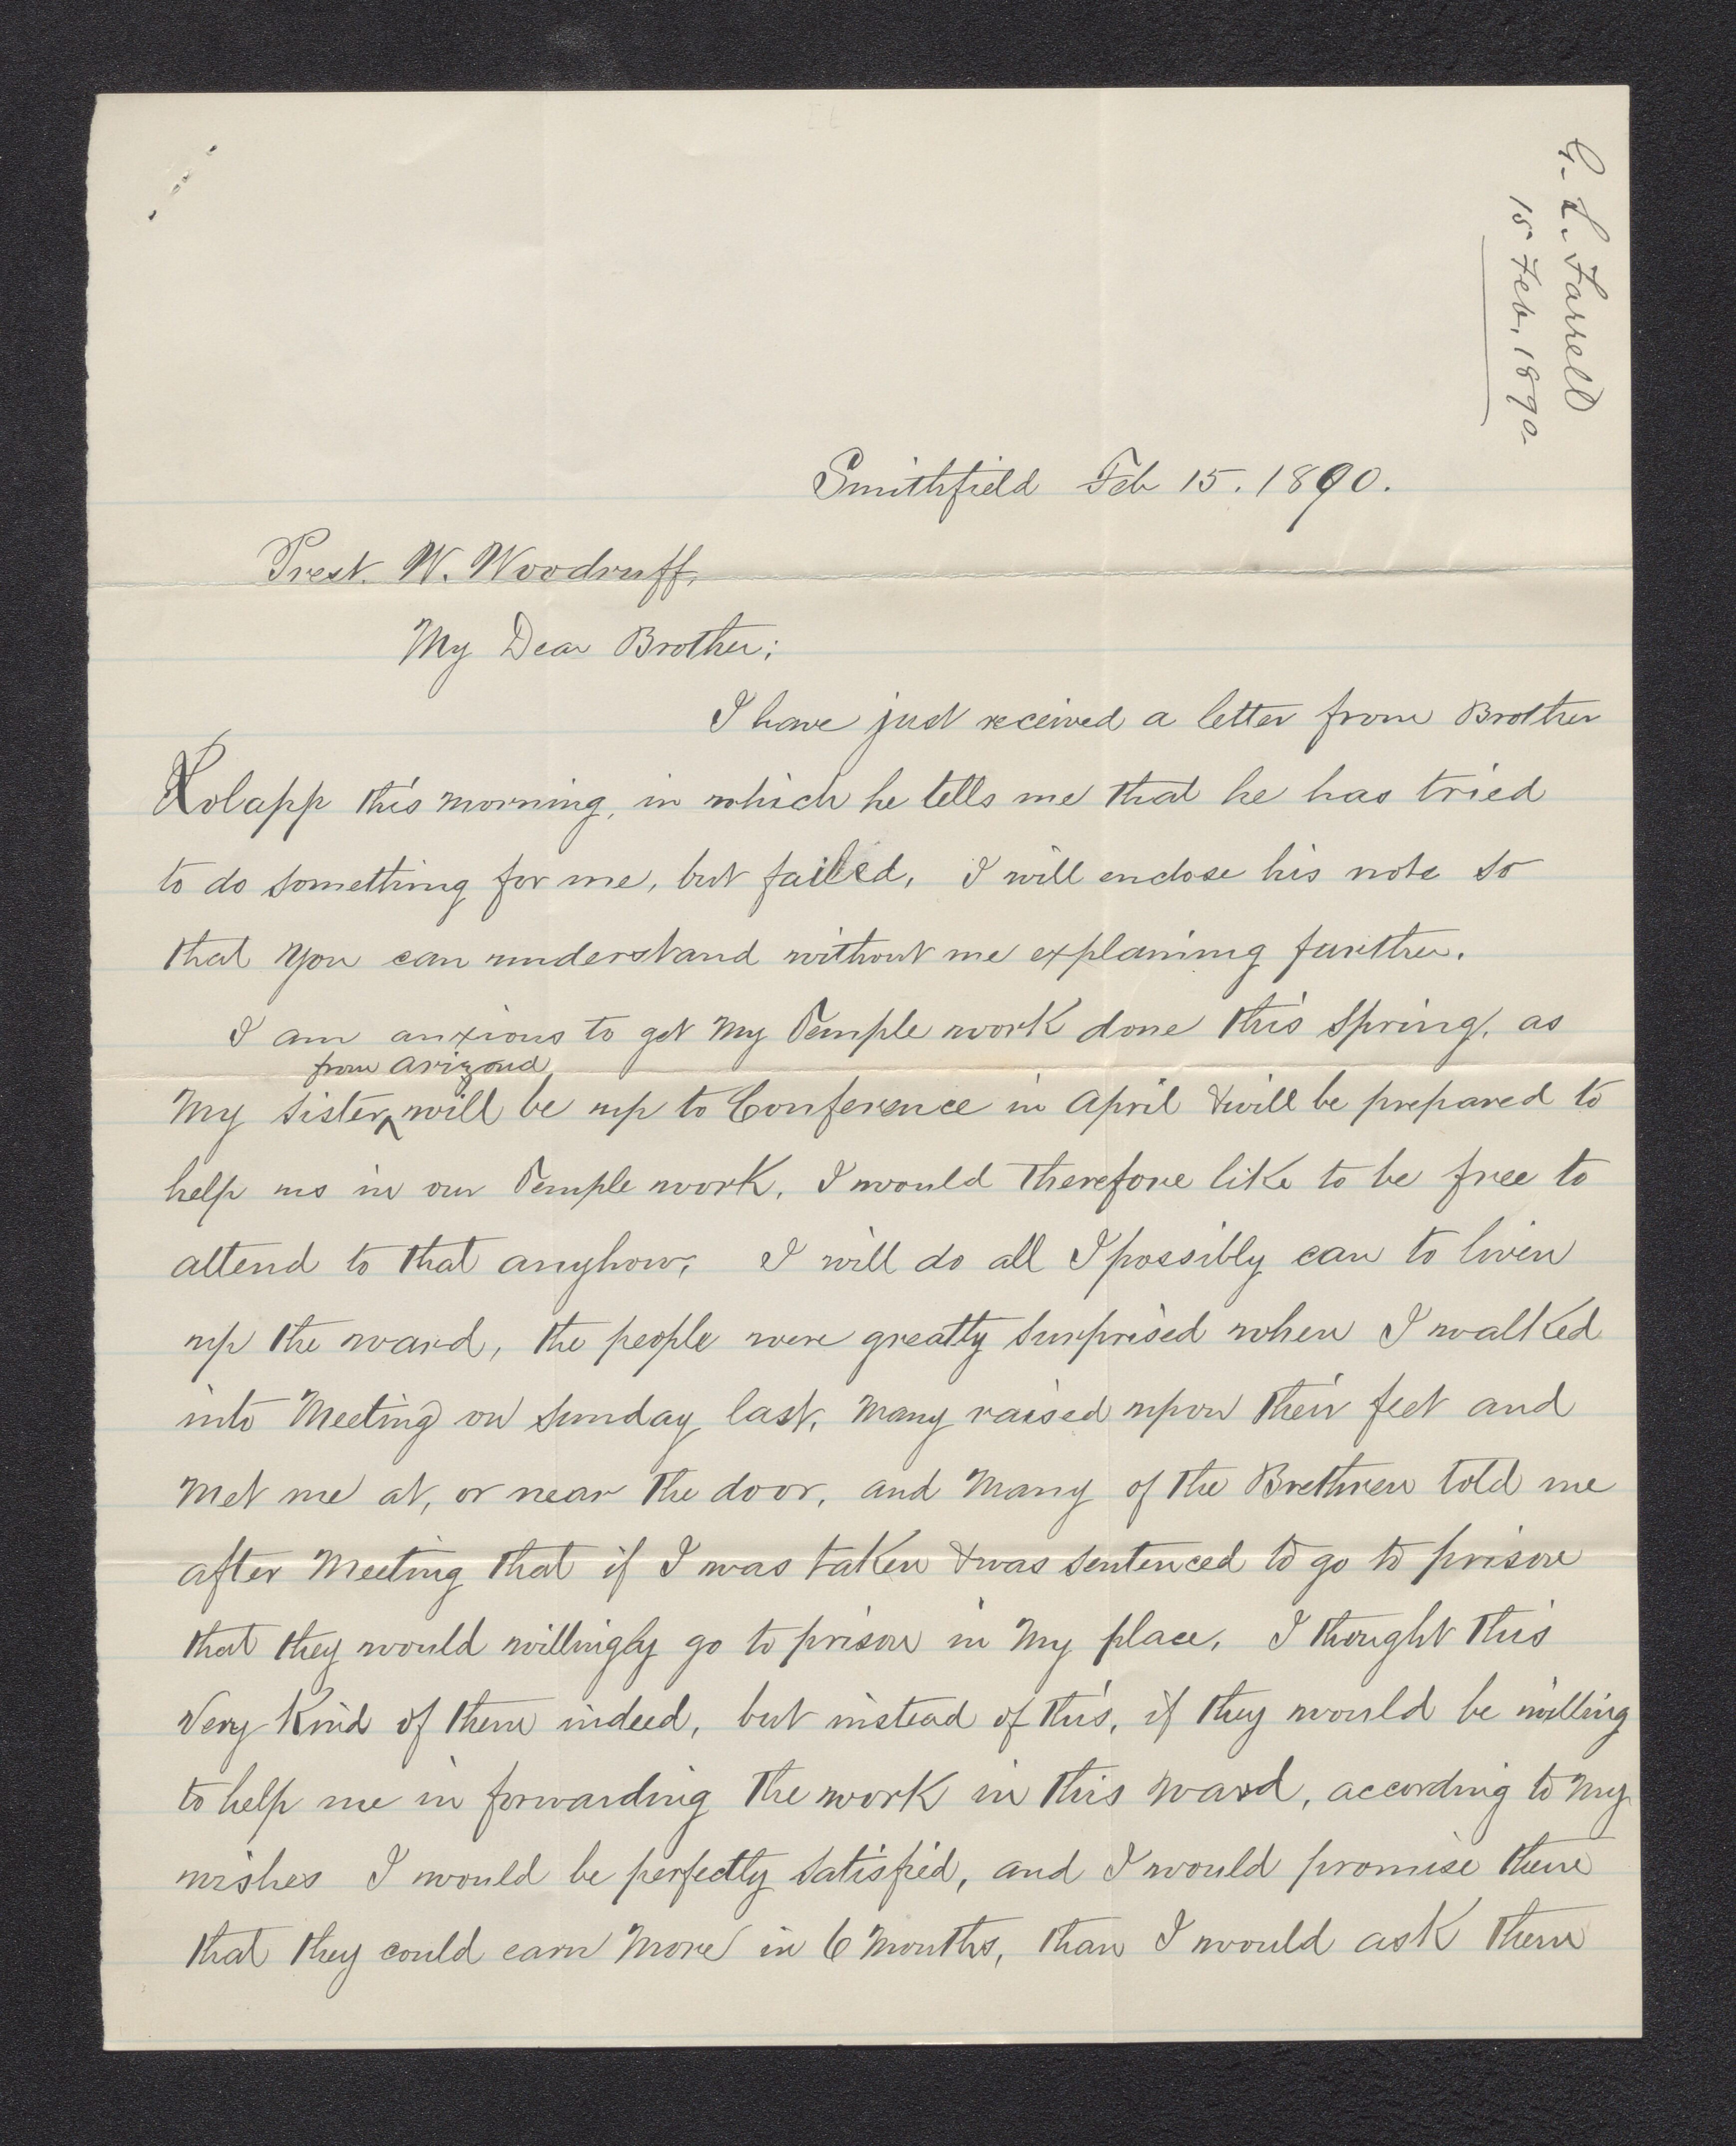 G. L. Farrell
15 Feb. 1890
Smithfield Feb 15. 1890.
Prest. W. Woodruff,
My Dear Brother;
I have just received a letter from Brother
Rolapp this morning, in which he tells me that he has tried
to do something for me, but failed, I will enclose his note so
that you can understand without me explaning further.
I am anxious to get my Temple work done this Spring, as
from Arizona
My sister ^ will be up to Conference in April & will be prepared to
help us in our Temple work, I would therefore like to be free to
attend to that anyhow; I will do all I possibly can to liven
up the ward, the people were greatly surprised when I walked
into Meeting on Sunday last, Many raised upon their feet and
Met me at, or near the door, and Many of the Brethren told me
after Meeting that if I was taken & was sentenced to go to prison
that they would willingly go to prison in My place, I thought this
Very Kind of them indeed, but instead of this, if they would be willing
to help me in forwarding the work in this ward, according to My
wishes I would be perfectly satisfied, and I would promise them
that they could earn More in 6 Months, than I would ask them